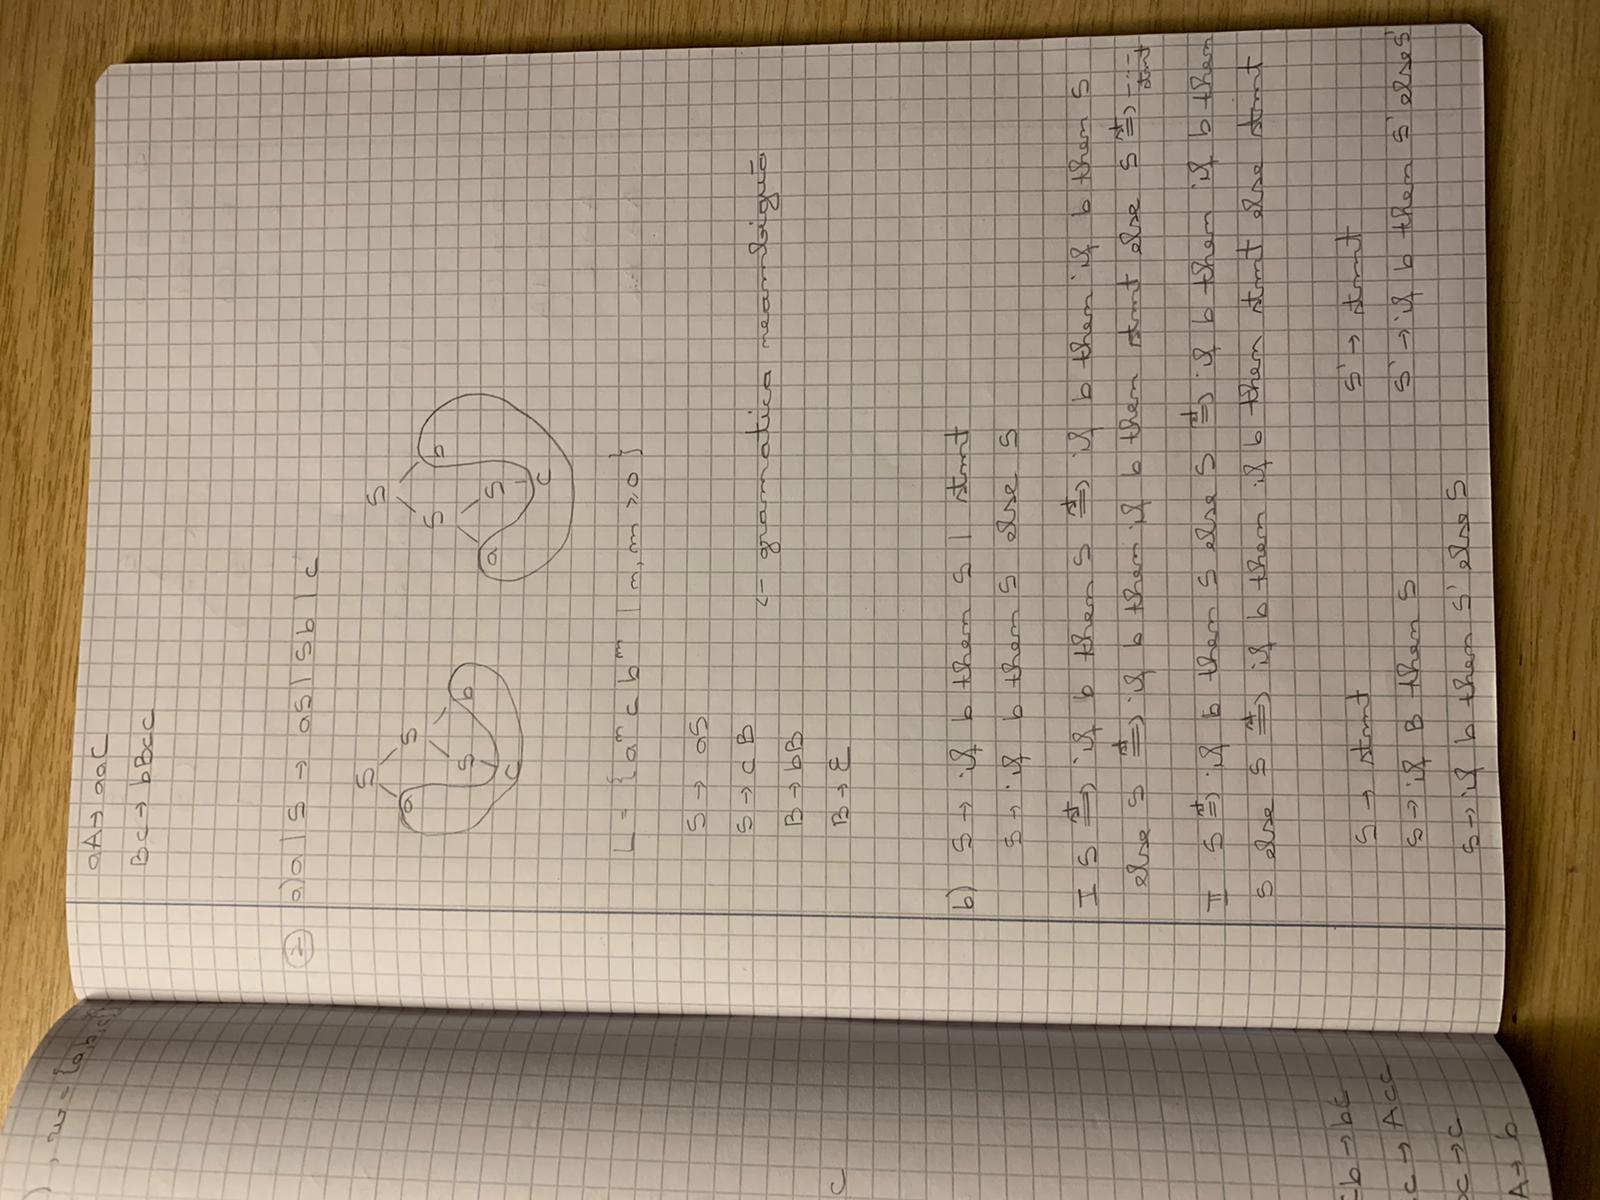 ), w = {a,b,c}
aA → aaC
Bc → bBcc
② a) a | S → aS | Sb | c
S
S
a S
S b
S b
a S
c
c
L = {aⁿ c bᵐ | n, m ≥ 0}
S → aS
S → cB
<- gramatica neambiguă
B → bB
B → ε
c
b) S → if b then S | stmt
S → if b then S else S
I S ⇒st if b then S ⇒st if b then if b then S
else S ⇒st if b then if b then stmt else S ⇒st ----
stmt
II S ⇒st if b then S else S ⇒st if b then if b then
S else S ⇒st if b then if b then stmt else stmt
cb → bc
S → stmt
S' → stmt
c → Acc
S → if B then S
S' → if b then S' else S'
c → c
S → if b then S' else S
A → b